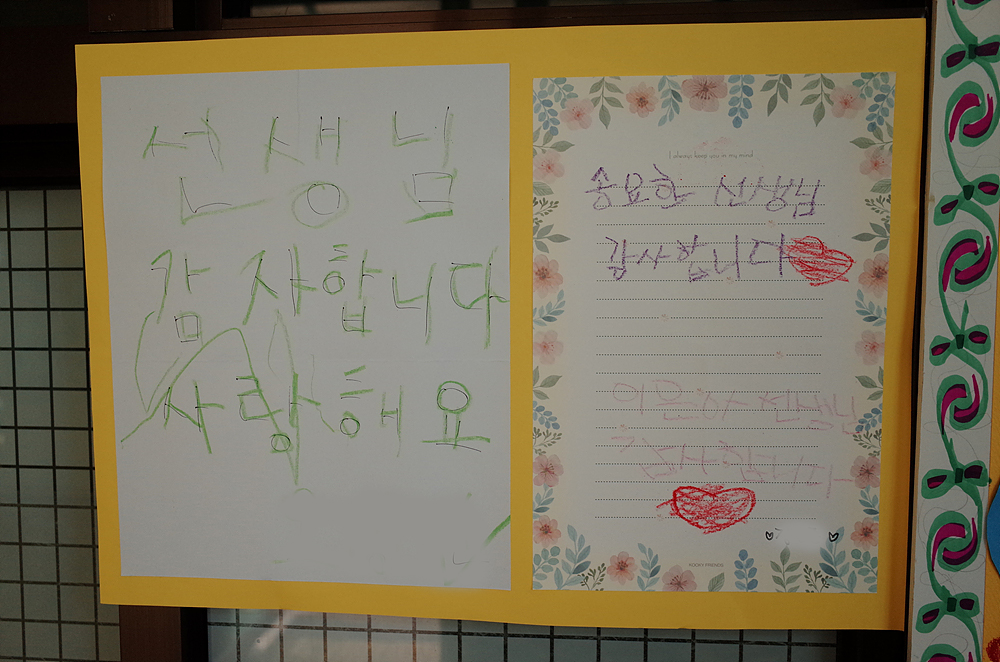 선생님
감사합니다
사랑해요
I always keep you in my mind
송요한 선생님
감사합니다
선생님
감사합니다